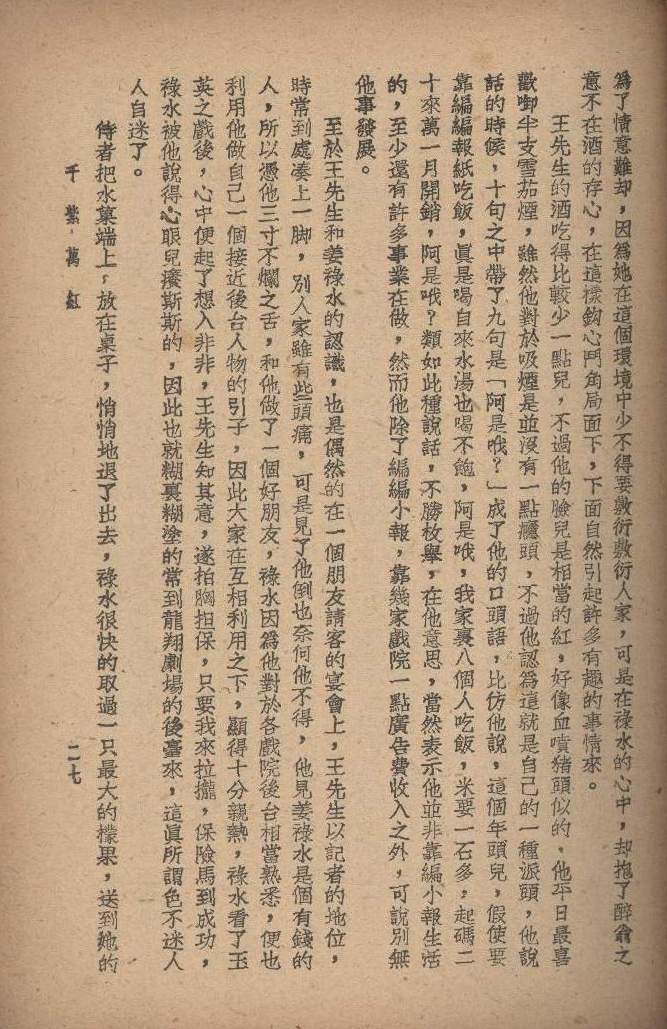 為了情意難却，因爲她在這個環境中少不得要敷衍敷衍人家，可是在祿水的心中，却抱了醉翁之
意不在酒的存心，在這樣鈎心鬥角局面下，下面自然引起許多有趣的事情來。
王先生的酒吃得比較少一點兒，不過他的臉兒是相當的紅，好像血噴猪頭似的，他平日最喜
歡啣半支雪茄煙，雖然他對於吸煙是並沒有一點癮頭，不過他認爲這就是自己的一種派頭，他說
話的時候，十句之中帶了九句是「阿是哦？」成了他的口頭語，比仿他說，這個年頭兒，假使要
靠編編報紙吃飯，眞是喝自來水湯也喝不飽，阿是哦，我家裏八個人吃飯，米要一石多，起碼二
十來萬一月開銷，阿是哦？類如此種說話，不勝枚舉，在他意思，當然表示他並非靠編小報生活
的，至少還有許多事業在做，然而他除了編編小報，靠幾家戲院一點廣告費收入之外，可說別無
他事發展。
至於王先生和姜祿水的認識，也是偶然的在一個朋友請客的宴會上，王先生以記者的地位，
時常到處凑上一脚，別人家雖有些頭痛，可是見了他倒也奈何他不得，他見姜祿水是個有錢的
人，所以憑他三寸不爛之舌，和他做了一個好朋友，祿水因爲他對於各戲院後台相當熟悉，便也
利用他做自己一個接近後台人物的引子，因此大家在互相利用之下，顯得十分親熱，祿水看了玉
英之戲後，心中便起了想入非非，王先生知其意，遂拍胸担保，只要我來拉攏，保險馬到成功，
祿水被他說得心眼兒癢斯斯的，因此也就糊裏糊塗的常到龍翔劇場的後臺來，這眞所謂色不迷人
人自迷了。
侍者把水菓端上，放在桌子，悄悄地退了出去，祿水很快的取過一只最大的檬果，送到她的
千紫萬紅
二七